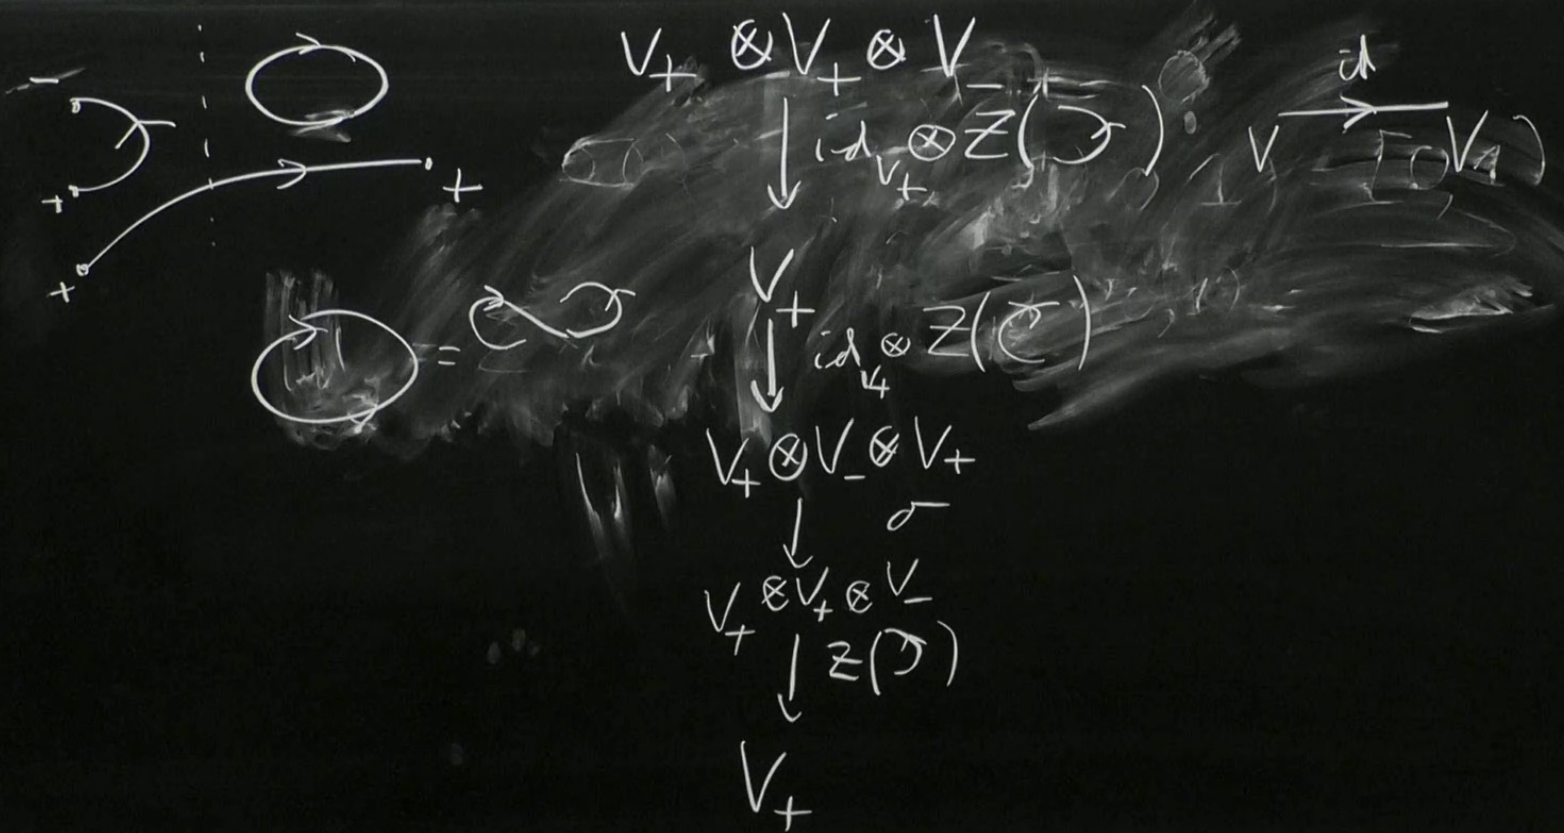 V₊ ⊗ V₊ ⊗ V₋
id_{V₊} ⊗ Z(⊃)
id
V → V
−
+
+
+
V₊
id_{V₊} ⊗ Z(⊂)
=
V₊ ⊗ V₋ ⊗ V₊
σ
V₊ ⊗ V₊ ⊗ V₋
Z(⊃)
V₊